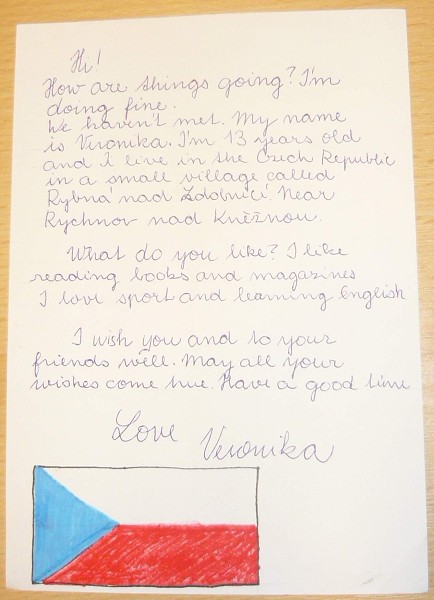 Hi!
How are things going? I'm
doing fine.
We haven't met. My name
is Veronika. I'm 13 years old
and I live in the Czech Republic
in a small village called
Rybná nad Zdobnicí. Near
Rychnov nad Kněžnou.
What do you like? I like
reading books and magazines
I love sport and learning English
I wish you and to your
friends well. May all your
wishes come true. Have a good time
Love
Veronika